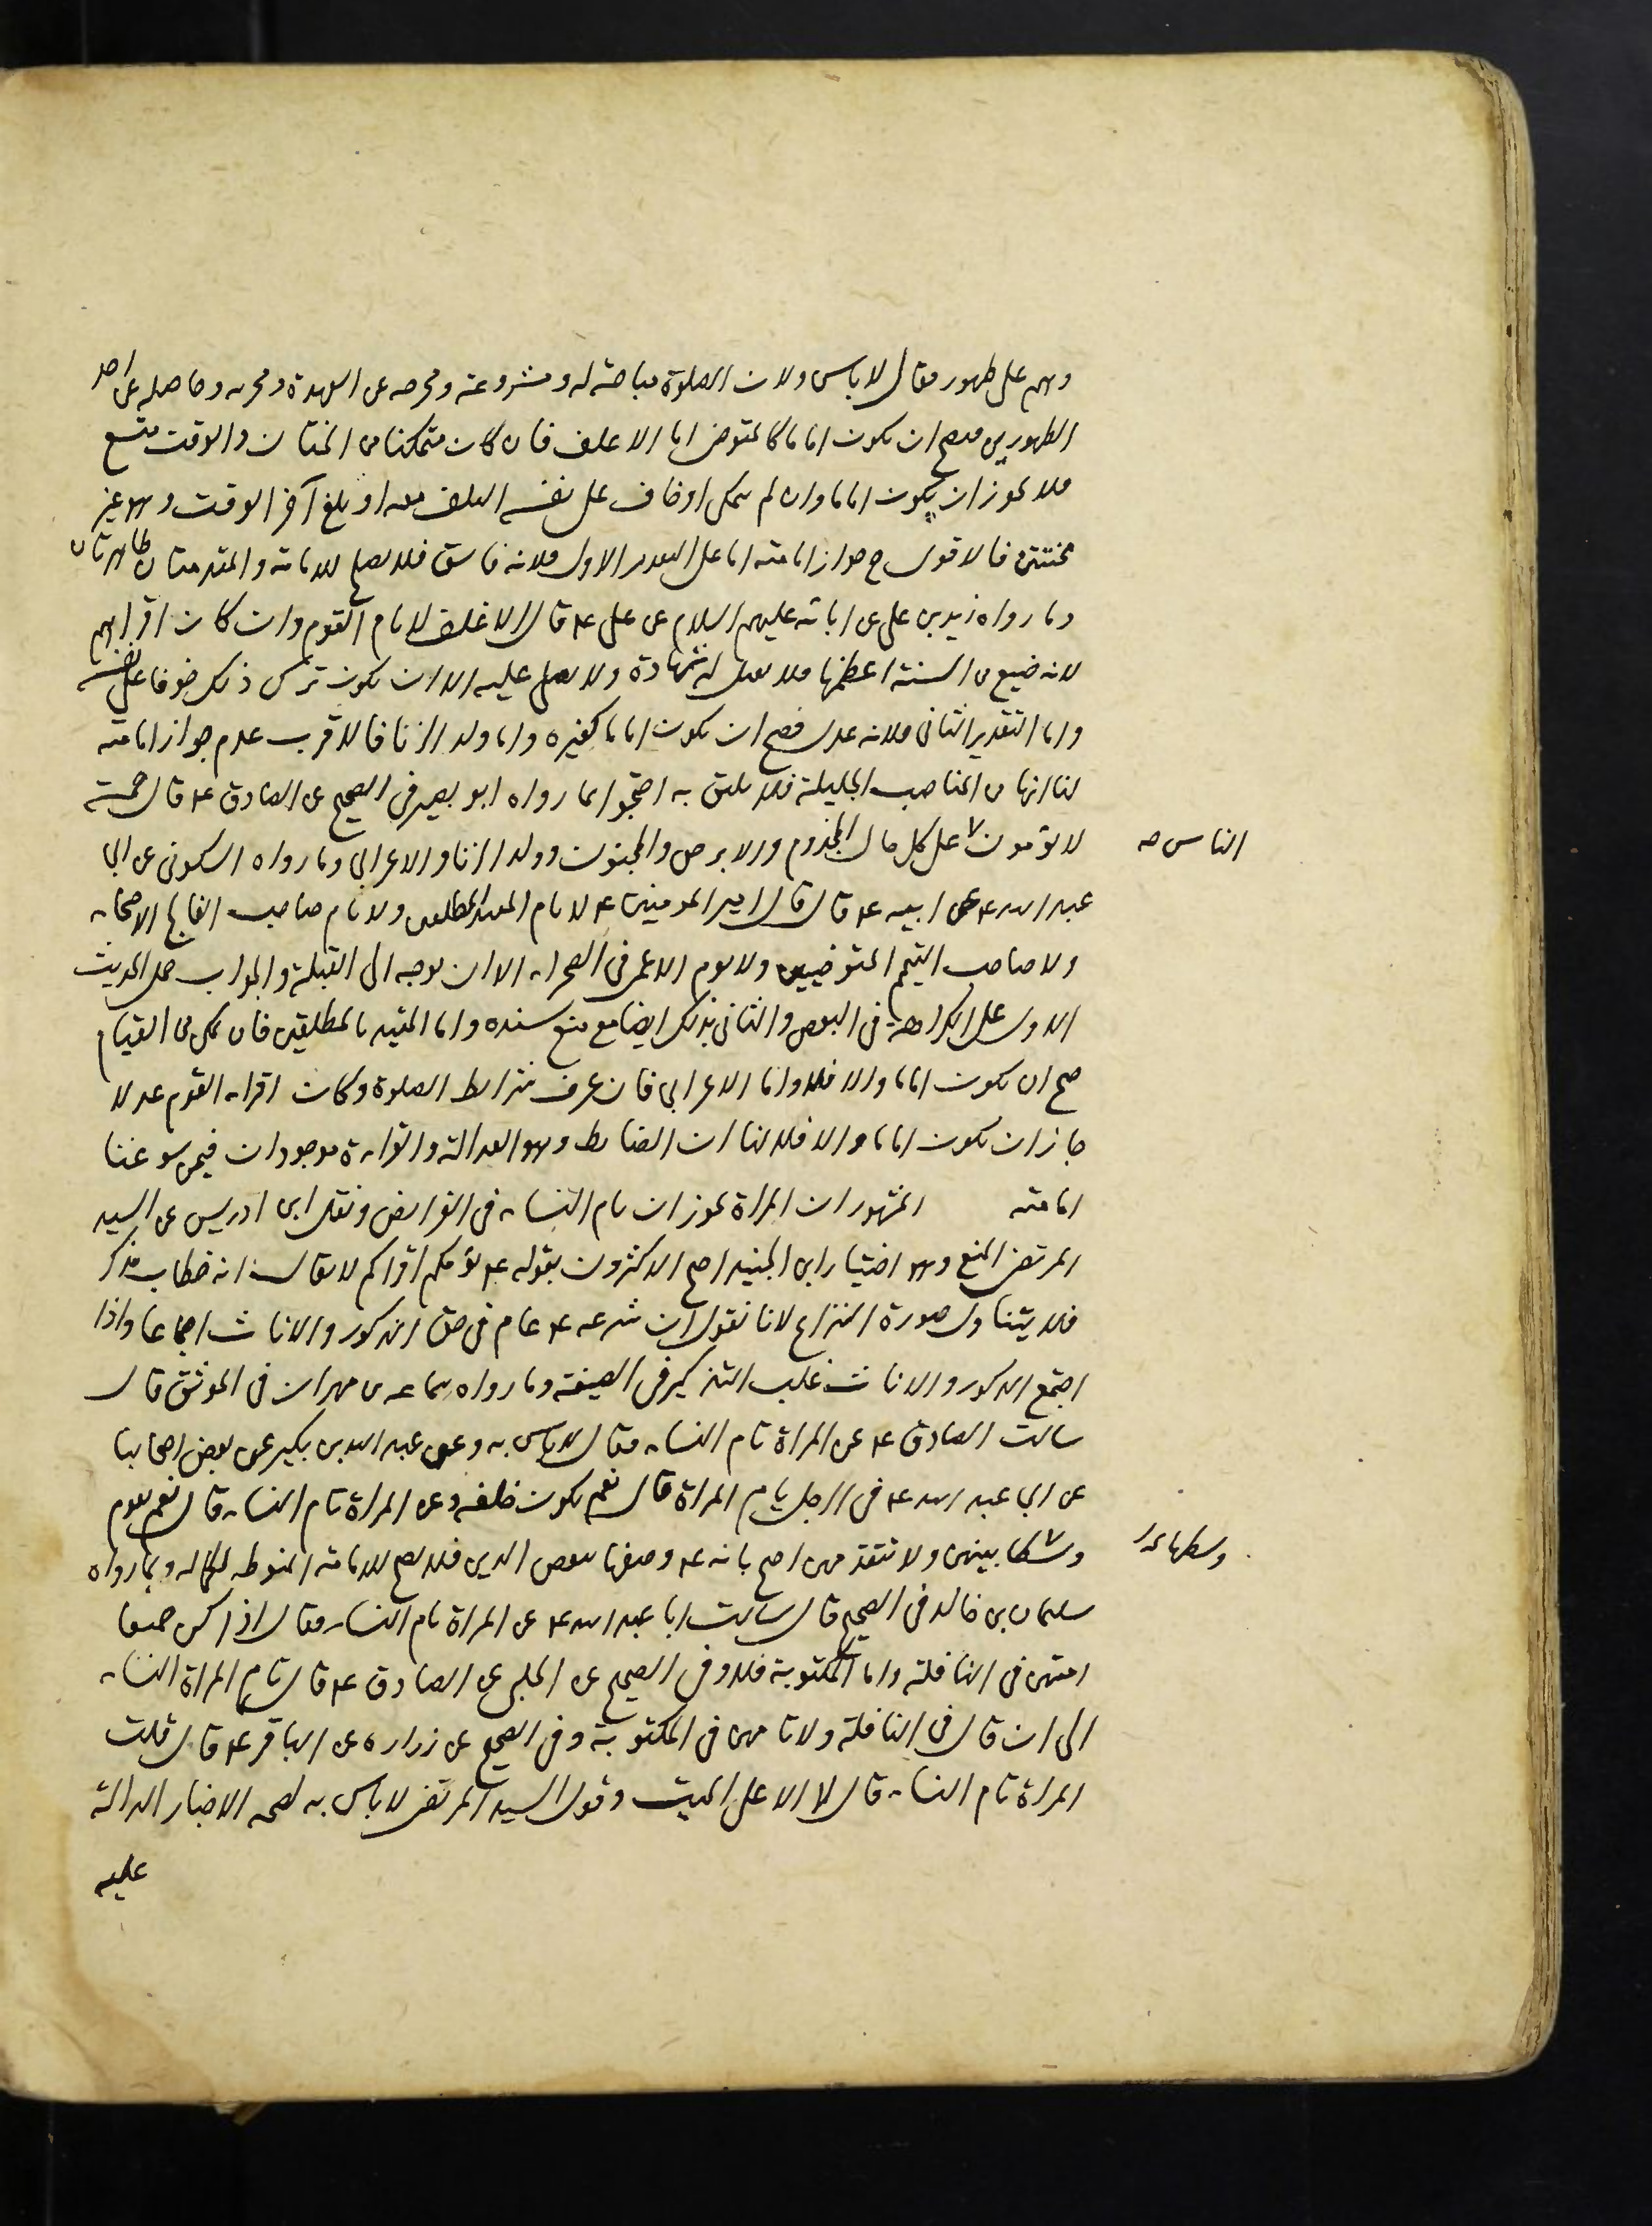 وهم على طهور فقال لا باس ولان الصلوة مباحة له ومشروعة ومخرجه عن العهدة ومجزيه وحاصله عن احد
الطهورين فصح ان يكون اماما كالمتوضى اما الاغلف فان كان متمكنا من الختان والوقت متسع
فلا يجوز ان يكون اماما وان لم يتمكن او خاف على نفسه التلف معه او بلغ آخر الوقت وهو غير
مختتن فالاقوى ح جواز امامته اما على التقدير الاول فلانه فاسق فلا يصلح للامامة والمقدمتان ظاهرتان
وما رواه زيد بن على عن ابائه عليهم السلام عن على ع قال الاغلف لا يام القوم وان كان اقراهم
لانه ضيع من السنة اعظمها ولا يقبل له شهادة ولا يصلى عليه الا ان يكون ترك ذلك خوفا على نفسه
واما التقدير الثانى فلانه عدل فصح ان يكون اماما كغيره واما ولد الزنا فالاقرب عدم جواز امامته
لنا انها من المناصب الجليلة فلا يليق به احتجوا بما رواه ابو بصير فى الصحيح عن الصادق ع قال خمسة
لا يؤمون على كل حال المجذوم والابرص والمجنون وولد الزنا والاعرابى وما رواه السكونى عن ابى
الناس صح
عبد الله ع عن ابيه ع قال قال امير المومنين ع لا يام المقيد المطلقين ولا يام صاحب الفالج الاصحاء
ولا صاحب التيمم المتوضيين ولا يوم الاعمى فى الصحراء الا ان يوجه الى القبلة والجواب حمل الحديث
الاول على الكراهة فى البعض والثانى بذلك ايضا مع منع سنده واما المقيد بالمطلقين فان تمكن من القيام
صح ان يكون اماما والا فلا واما الاعرابى فان عرف شرائط الصلوة وكان اقراء القوم عدلا
جاز ان يكون اماما والا فلا لنا ان الضابط وهو العدالة والقراءة موجودان فيمن سوغنا
امامته المشهور ان المراة يجوز ان تام النساء فى الفرايض ونقل ابن ادريس عن السيد
المرتضى المنع وهو اختيار ابن الجنيد احتج الاكثرون بقوله ع يؤمكم اقراكم لا يقال انه خطاب مذكر
فلا يتناول صورة النزاع لانا نقول ان شرعه ع عام فى حق الذكور والاناث اجماعا واذا
اجتمع الذكور والاناث غلب التذكير فى الصيغة وما رواه سماعه بن مهران فى الموثق قال
سالت الصادق ع عن المراة تام النساء فقال لا باس به وعن عبد الله بن بكير عن بعض اصحابنا
عن ابى عبد الله ع فى الرجل يام المراة قال نعم يكون خلفه وعن المراة تام النساء قال نعم يقوم
وسطا بينهن ولا تتقدمهن احتج بانه ع وصفها بنقص الدين فلا يصح للامامة المنوطه بالكماله وبما رواه
سليمان بن خالد فى الصحيح قال سالت ابا عبد الله ع عن المراة تام النساء فقال اذا كن جميعا
امتهن فى النافلة واما المكتوبة فلا وفى الصحيح عن الحلبى عن الصادق ع قال تام المراة النساء
الى ان قال فى النافلة ولا تامهن فى المكتوبة وفى الصحيح عن زراره عن الباقر ع قال قلت
المراة تام النساء قال لا الا على الميت وقول السيد المرتضى لا باس به لصحه الاخبار الدالة
عليه